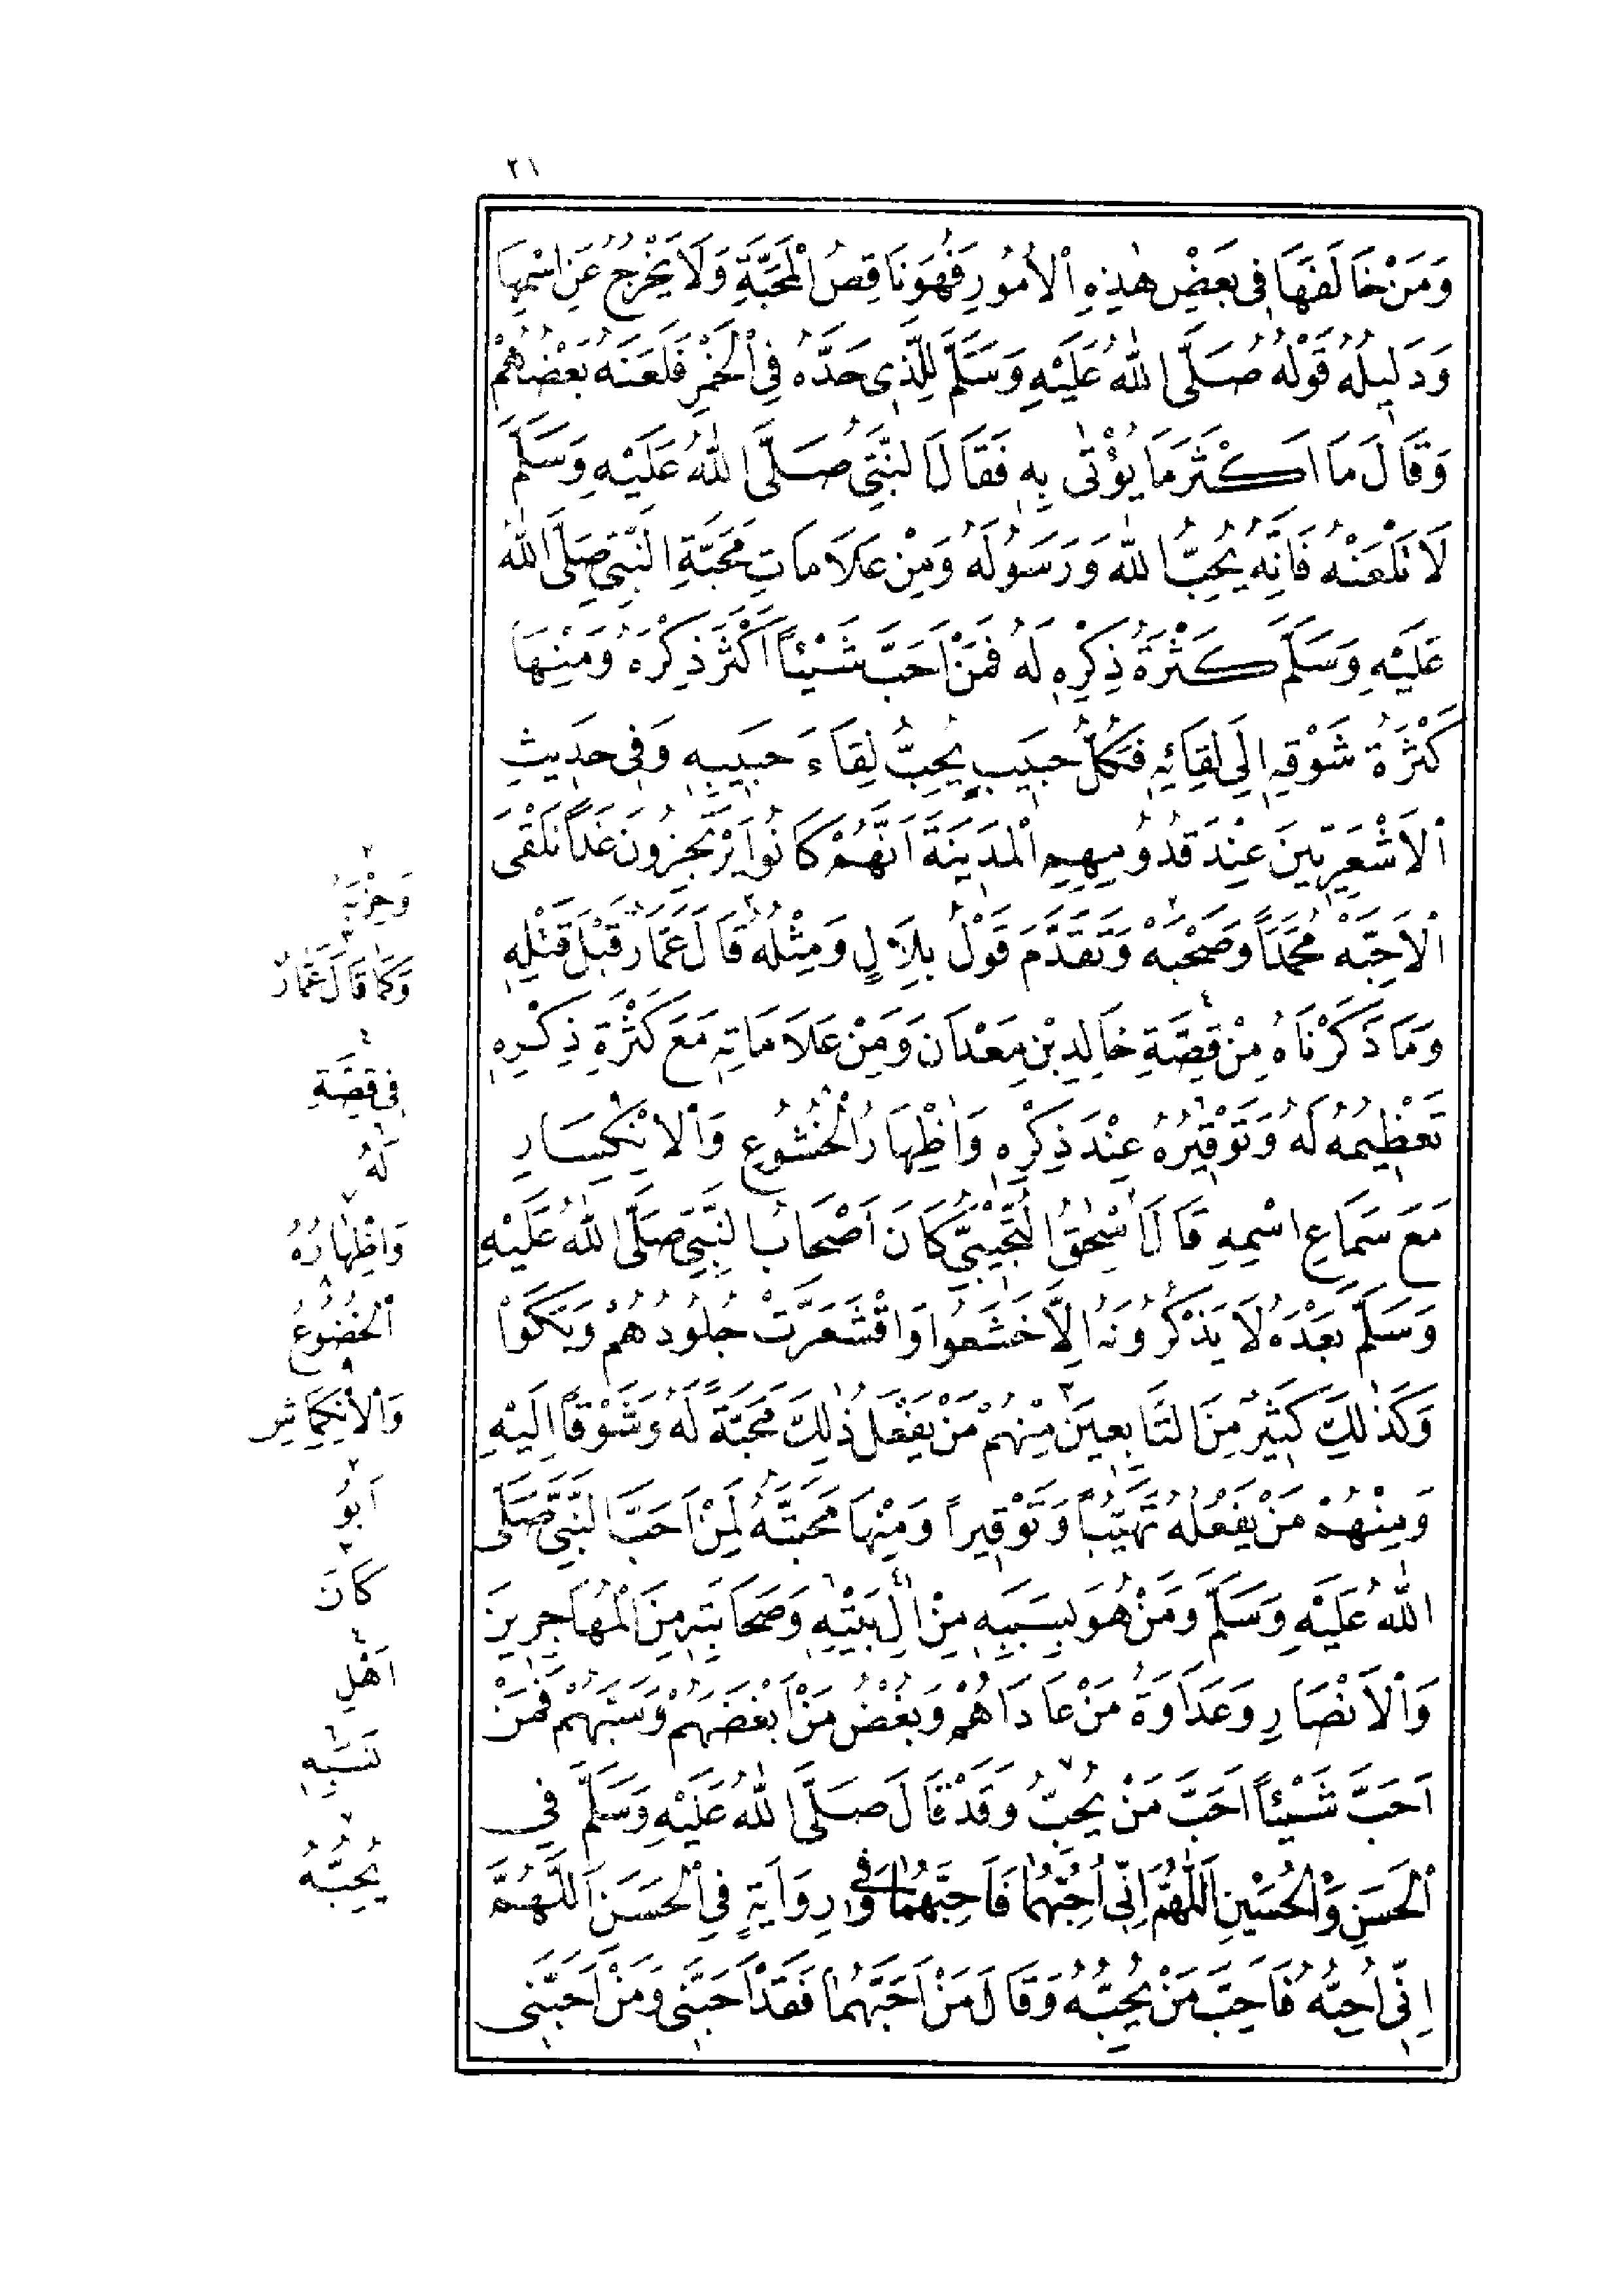 ٢١
وَمَنْ خَالَفَهَا فِي بَعْضِ هٰذِهِ الْأُمُورِ فَهُوَ نَاقِصُ الْمَحَبَّةِ وَلَا يَخْرُجُ عَنِ اسْمِهَا
وَدَلِيلُهُ قَوْلُهُ صَلَّى اللهُ عَلَيْهِ وَسَلَّمَ لِلَّذِي حَدَّهُ فِي الْخَمْرِ فَلَعَنَهُ بَعْضُهُمْ
وَقَالَ مَا اَكْثَرَ مَا يُؤْتٰى بِهِ فَقَالَ النَّبِيُّ صَلَّى اللهُ عَلَيْهِ وَسَلَّمَ
لَا تَلْعَنْهُ فَاِنَّهُ يُحِبُّ اللهَ وَرَسُولَهُ وَمِنْ عَلَامَاتِ مَحَبَّةِ النَّبِيِّ صَلَّى اللهُ
عَلَيْهِ وَسَلَّمَ كَثْرَةُ ذِكْرِهِ لَهُ فَمَنْ اَحَبَّ شَيْئاً اَكْثَرَ ذِكْرَهُ وَمِنْهَا
كَثْرَةُ شَوْقِهِ اِلَى لِقَائِهِ فَكُلُّ حَبِيبٍ يُحِبُّ لِقَاءَ حَبِيبِهِ وَفِي حَدِيثِ
الْاَشْعَرِيِّينَ عِنْدَ قُدُومِهِمِ الْمَدِينَةَ اَنَّهُمْ كَانُوا يَرْتَجِزُونَ غَداً نَلْقَى
الْاَحِبَّهْ مُحَمَّداً وَصَحْبَهْ وَتَقَدَّمَ قَوْلُ بِلَالٍ وَمِثْلُهُ قَالَ عَمَّارٌ قَبْلَ قَتْلِهِ
وَمَا ذَكَرْنَاهُ مِنْ قِصَّةِ خَالِدِ بْنِ مَعْدَانَ وَمِنْ عَلَامَاتِهِ مَعَ كَثْرَةِ ذِكْرِهِ
تَعْظِيمُهُ لَهُ وَتَوْقِيرُهُ عِنْدَ ذِكْرِهِ وَاِظْهَارُ الْخُشُوعِ وَالْاِنْكِسَارِ
مَعَ سَمَاعِ اسْمِهِ قَالَ اِسْحٰقُ التُّجِيبِيُّ كَانَ اَصْحَابُ النَّبِيِّ صَلَّى اللهُ عَلَيْهِ
وَسَلَّمَ بَعْدَهُ لَا يَذْكُرُونَهُ اِلَّا خَشَعُوا وَاقْشَعَرَّتْ جُلُودُهُمْ وَبَكَوْا
وَكَذٰلِكَ كَثِيرٌ مِنَ التَّابِعِينَ مِنْهُمْ مَنْ يَفْعَلُ ذٰلِكَ مَحَبَّةً لَهُ وَشَوْقاً اِلَيْهِ
وَمِنْهُمْ مَنْ يَفْعَلُهُ تَهَيُّباً وَتَوْقِيراً وَمِنْهَا مَحَبَّتُهُ لِمَنْ اَحَبَّ النَّبِيَّ صَلَّى
اللهُ عَلَيْهِ وَسَلَّمَ وَمَنْ هُوَ بِسَبَبِهِ مِنْ اٰلِ بَيْتِهِ وَصَحَابَتِهِ مِنَ الْمُهَاجِرِينَ
وَالْاَنْصَارِ وَعَدَاوَةُ مَنْ عَادَاهُمْ وَبُغْضُ مَنْ اَبْغَضَهُمْ وَسَبَّهُمْ فَمَنْ
اَحَبَّ شَيْئاً اَحَبَّ مَنْ يُحِبُّ وَقَدْ قَالَ صَلَّى اللهُ عَلَيْهِ وَسَلَّمَ فِي
الْحَسَنِ وَالْحُسَيْنِ اَللّٰهُمَّ اِنِّي اُحِبُّهُمَا فَاَحِبَّهُمَا وَفِي رِوَايَةٍ فِي الْحَسَنِ اَللّٰهُمَّ
اِنِّي اُحِبُّهُ فَاَحِبَّ مَنْ يُحِبُّهُ وَقَالَ مَنْ اَحَبَّهُمَا فَقَدْ اَحَبَّنِي وَمَنْ اَحَبَّنِي
٢
وَحِزْبَهُ
٣
وَكَمَا قَالَ عَمَّارٌ
٤
فِي قِصَّةِ
لَهُ
٧
وَاِظْهَارُهُ
٨
الْخُضُوعُ
٩
وَالْاِنْكِمَاشِ
٢
اَبُو
٣
كَانَ
٤
اَهْلِ
٦
نَسَبِهِ
٧
يُحِبُّهُ